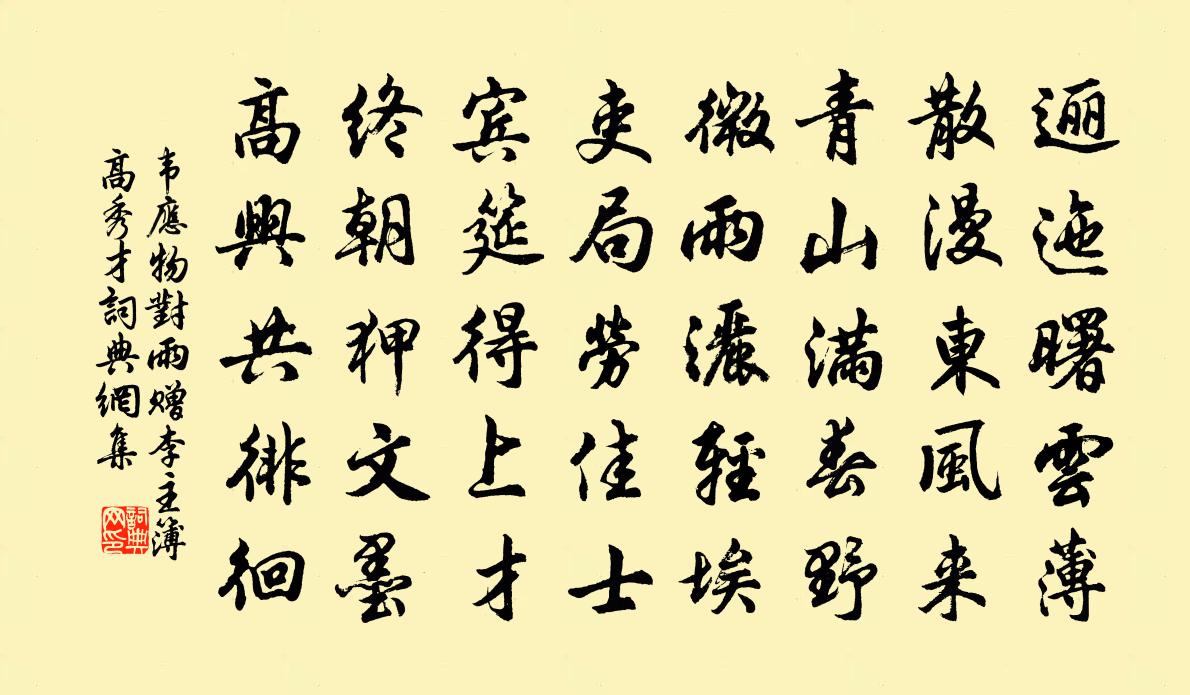 逦迤曙雲薄
散漫東風来
青山满春野
微雨灑輕埃
吏局勞佳士
宾筵得上才
终朝狎文墨
高興共徘徊
韦應物對雨赠李主簿
高秀才詞典網集
詞典网印